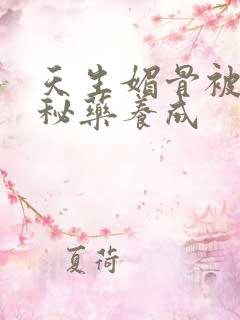 天生媚骨被
秘药养成
夏荷